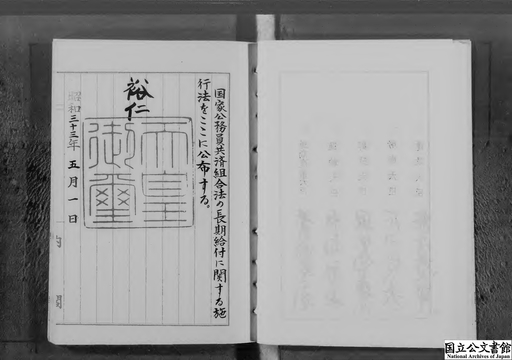 国家公務員共済組合法の長期給付に関する施
行法をここに公布する。
裕仁
天皇
御璽
昭和三十三年五月一日
国立公文書館
National Archives of Japan